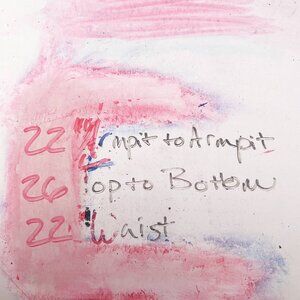 22" Armpit to Armpit
26" Top to Bottom
22" Waist